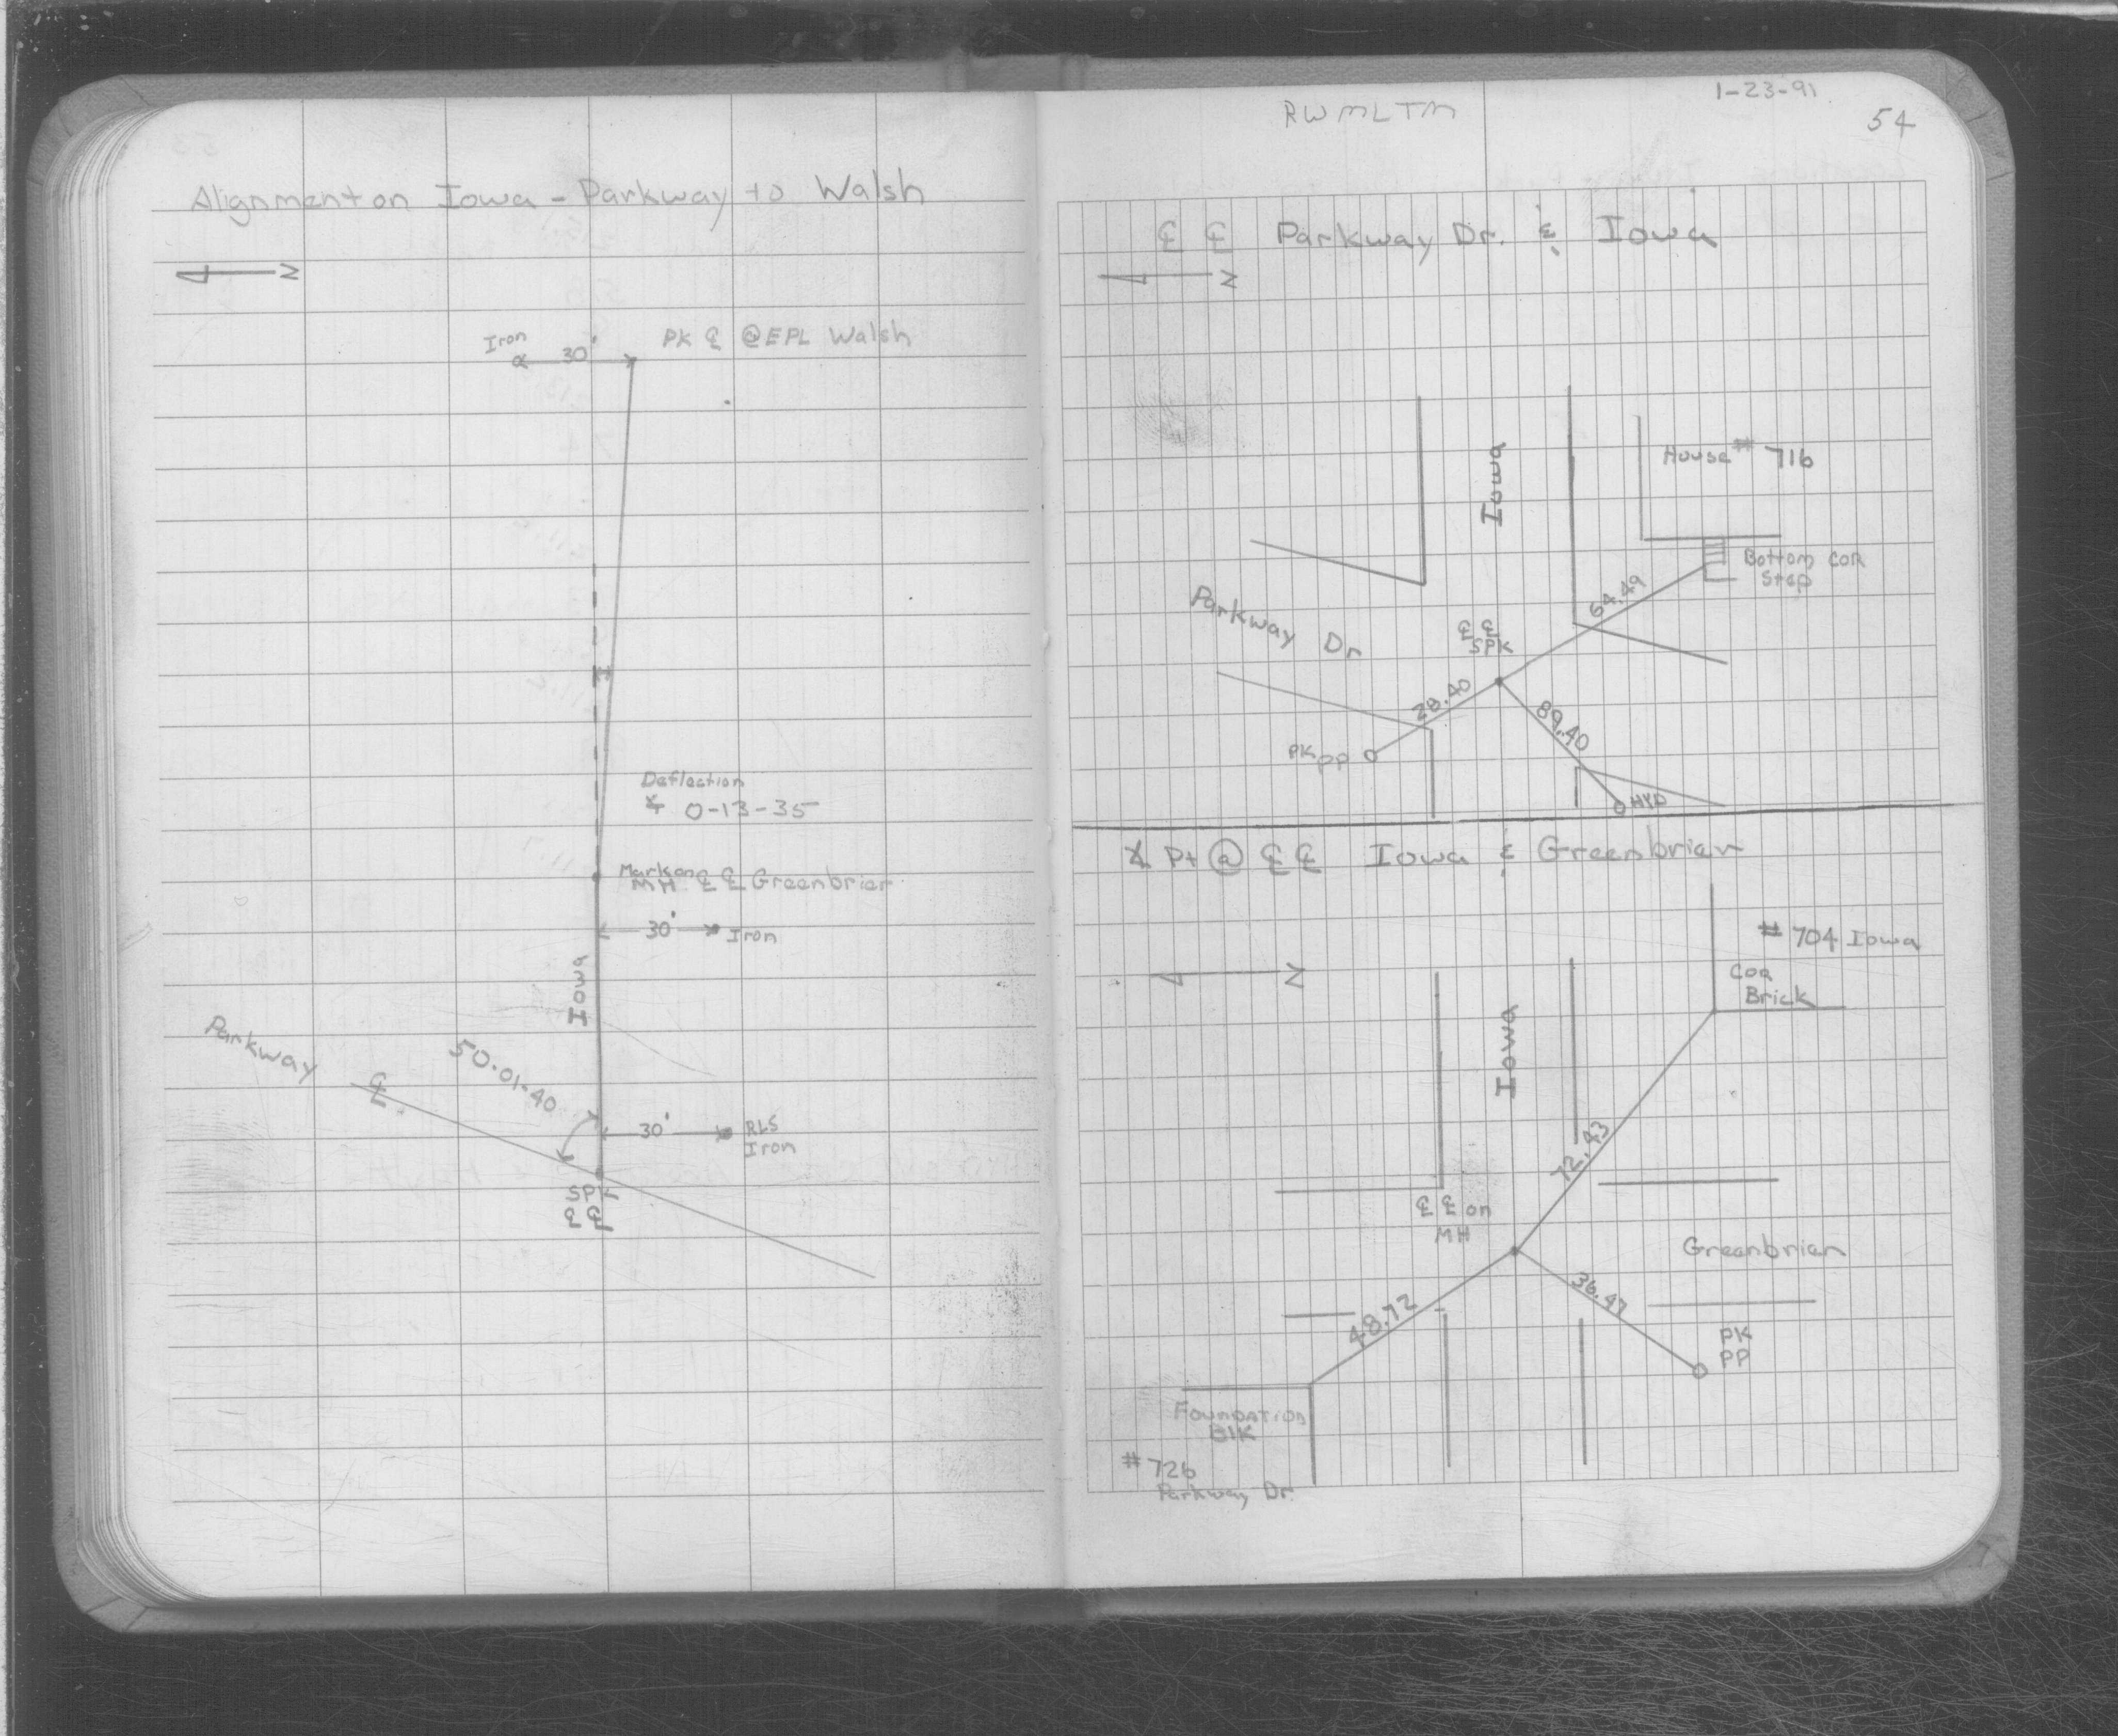 Alignment on Iowa - Parkway to Walsh
N
Iron
30'
PK ℄ @ EPL Walsh
Deflection
∡ 0-13-35
Mark on
MH ℄ ℄ Greenbrier
30'
Iron
Iowa
Parkway
℄
50-01-40
30'
RLS
Iron
SPK
℄ ℄
RW ML TM
1-23-91
54
℄ ℄ Parkway Dr. & Iowa
N
Iowa
House # 716
Bottom COR
Step
Parkway Dr
64.49
℄ ℄
SPK
28.40
89.40
PK PP
HYD
∡ Pt @ ℄ ℄ Iowa & Greenbrier
# 704 Iowa
N
COR
Brick
Iowa
72.43
℄ ℄ on
MH
Greenbrier
36.47
48.72
PK
PP
Foundation
Blk
# 726
Parkway Dr.